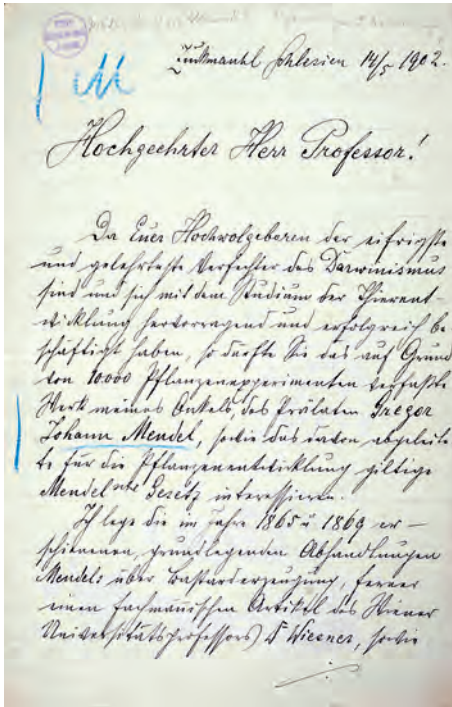 Zuckmantel Schlesien 14/5 1902.
Hochgeehrter Herr Professor!
Da Euer Hochwolgeboren der eifrigste
und gelehrteste Verfechter des Darwinismus
sind und sich mit dem Studium der Thierent-
wicklung hervorragend und erfolgreich be
schäftigt haben, so dürfte Sie das auf Grund
von 10000 Pflanzenexperimenten verfaßte
Werk meines Onkels, des Prälaten Gregor
Johann Mendel, sowie das davon abgeleite
te für die Pflanzenentwicklung giltige
Mendel'sche Gesetz interessieren.
Ich lege die im Jahre 1865 u 1869 er-
schienenen, grundlegenden Abhandlungen
Mendels über Bastarderzeugung, ferner
einen fachmännischen Artikel des Wiener
Universitätsprofessors Dr Wiesner, sowie